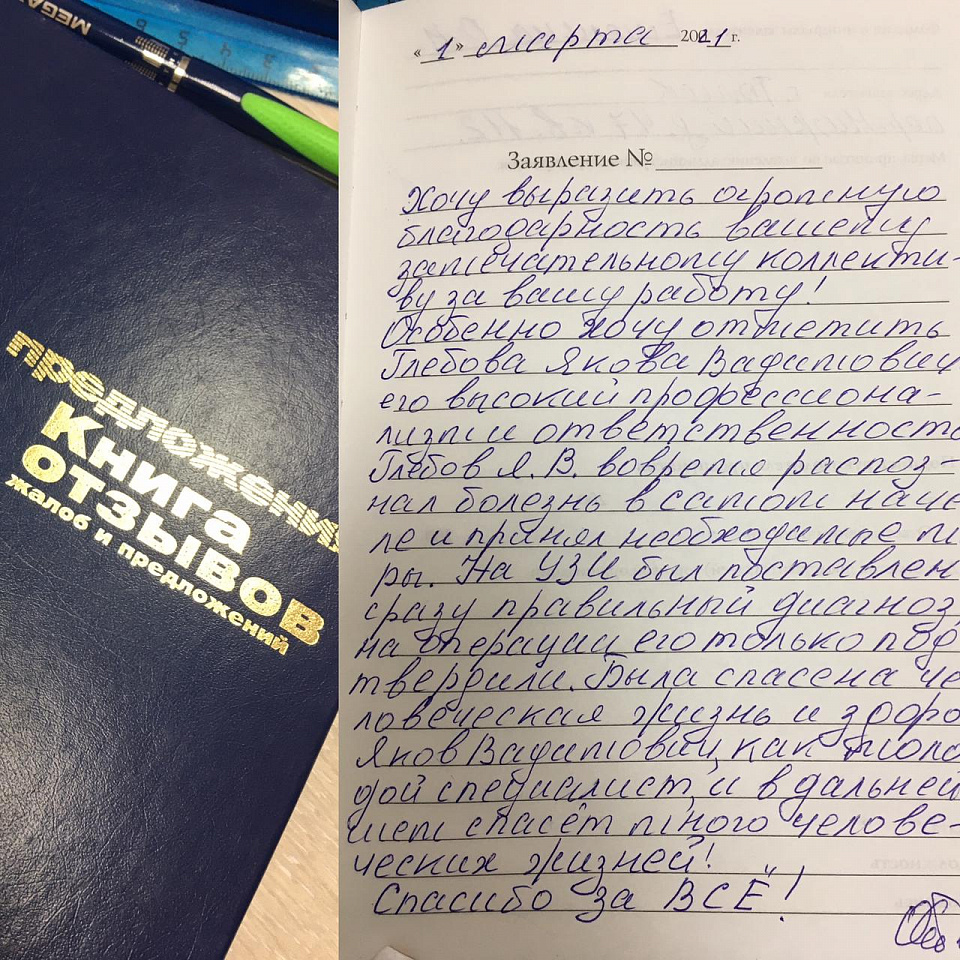 MEGA
предложения
Книга
отзывов
жалоб и предложений
«1» марта 2021 г.
Заявление №
Хочу выразить огромную
благодарность вашему
замечательному коллекти-
ву за вашу работу!
Особенно хочу отметить
Глебова Якова Вадимович
его высокий профессиона-
лизм и ответственность
Глебов Я. В. вовремя распоз-
нал болезнь в самом нача
ле и принял необходимые м
ры. На УЗИ был поставлен
сразу правильный диагноз,
на операции его только под
твердили. Была спасена че
ловеческая жизнь и здоро
Яков Вадимович, как моло
дой специалист, и в дальней
шем спасёт много челове-
ческих жизней!
Спасибо за ВСЁ"!